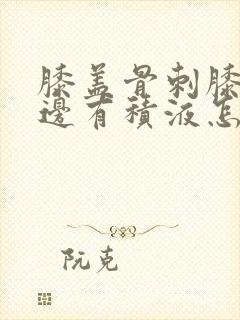 膝盖骨刺膝
邊有積液怎
阮克